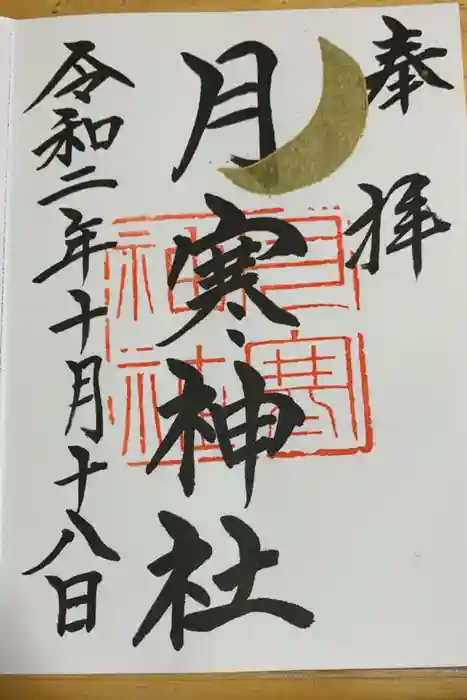 奉拝
月寒神社
月寒
神社
令和二年十月十八日